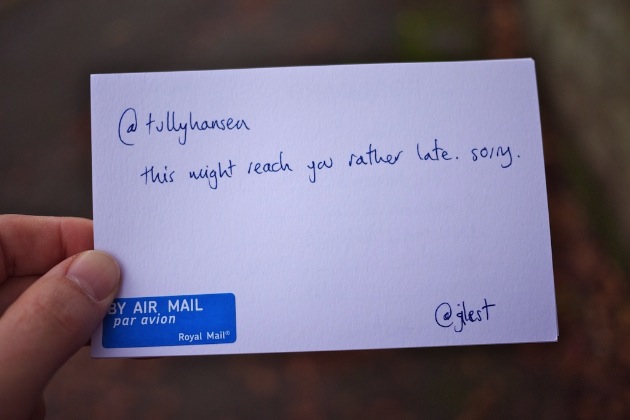 @tullyhansen
this might reach you rather late. sorry.
BY AIR MAIL
par avion
Royal Mail®
@jlest